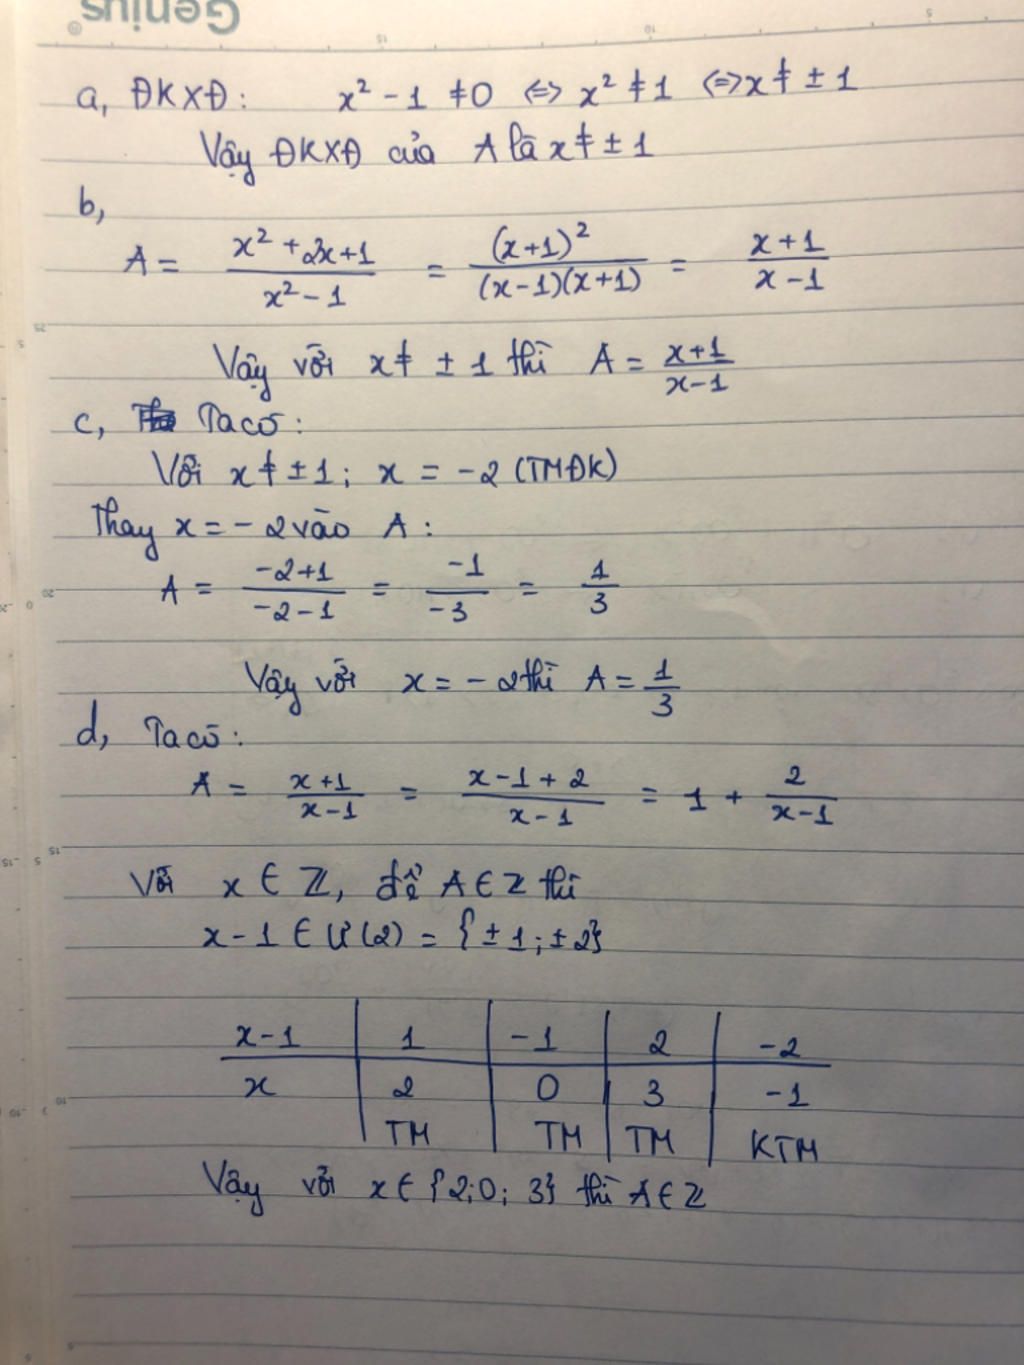 Genius®
a, ĐKXĐ: x² - 1 ≠ 0 <=> x² ≠ 1 <=> x ≠ ± 1
Vậy ĐKXĐ của A là x ≠ ± 1
b,
A = (x² + 2x + 1)/(x² - 1) = (x+1)²/((x-1)(x+1)) = (x+1)/(x-1)
Vậy với x ≠ ± 1 thì A = (x+1)/(x-1)
c, Ta có:
Với x ≠ ± 1; x = -2 (TMĐK)
Thay x = -2 vào A:
A = (-2+1)/(-2-1) = -1/-3 = 1/3
Vậy với x = -2 thì A = 1/3
d, Ta có:
A = (x+1)/(x-1) = (x-1+2)/(x-1) = 1 + 2/(x-1)
Với x ∈ Z, để A ∈ Z thì
x-1 ∈ Ư(2) = {±1; ±2}
x-1 | 1 | -1 | 2 | -2
x | 2 | 0 | 3 | -1
TM | TM | TM | KTM
Vậy với x ∈ {2; 0; 3} thì A ∈ Z